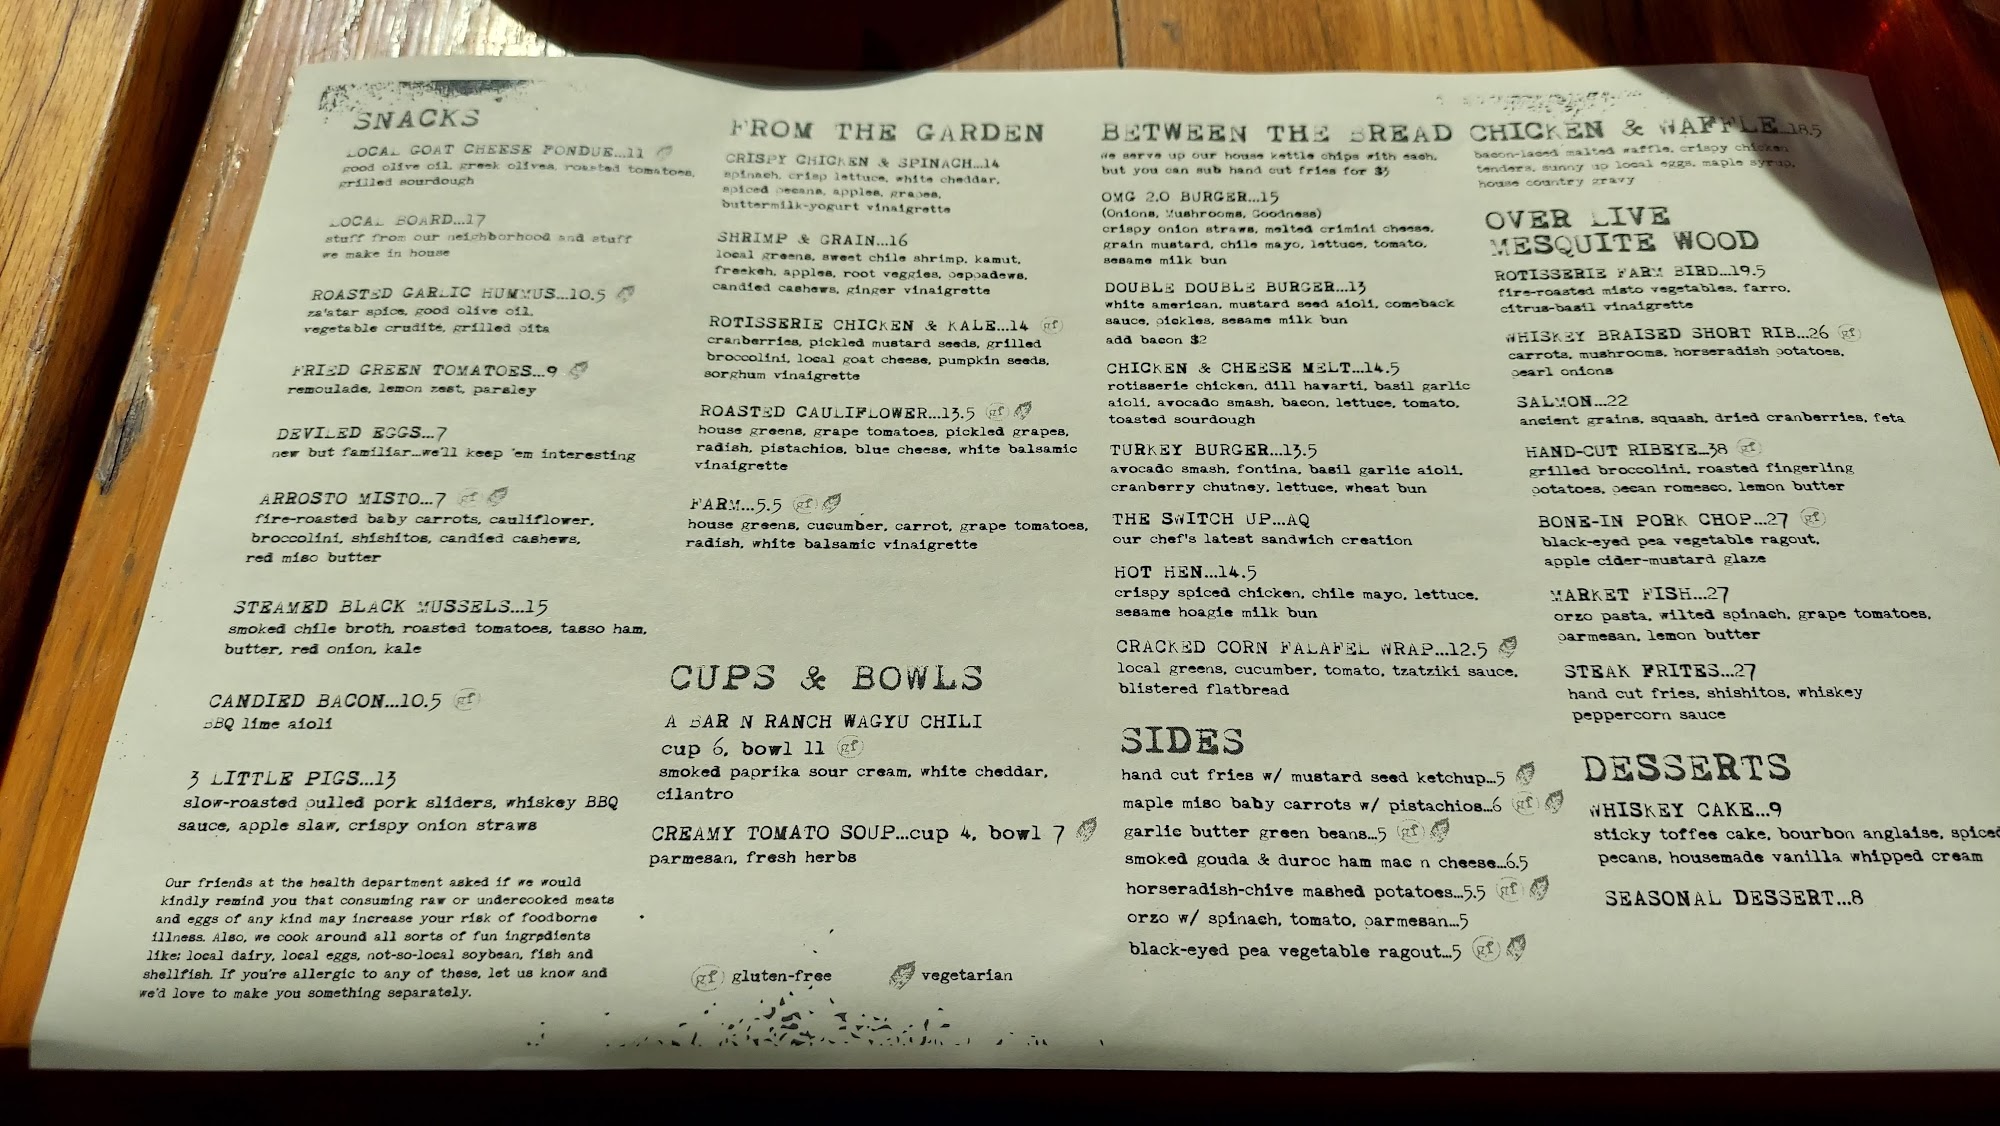 SNACKS
LOCAL GOAT CHEESE FONDUE...11
good olive oil, greek olives, roasted tomatoes,
grilled sourdough
LOCAL BOARD...17
stuff from our neighborhood and stuff
we make in house
ROASTED GARLIC HUMMUS...10.5
za'atar spice, good olive oil,
vegetable crudite, grilled pita
FRIED GREEN TOMATOES...9
remoulade, lemon zest, parsley
DEVILED EGGS...7
new but familiar...we'll keep 'em interesting
ARROSTO MISTO...7 gf
fire-roasted baby carrots, cauliflower,
broccolini, shishitos, candied cashews,
red miso butter
STEAMED BLACK MUSSELS...15
smoked chile broth, roasted tomatoes, tasso ham,
butter, red onion, kale
CANDIED BACON...10.5 gf
BBQ lime aioli
3 LITTLE PIGS...13
slow-roasted pulled pork sliders, whiskey BBQ
sauce, apple slaw, crispy onion straws
Our friends at the health department asked if we would
kindly remind you that consuming raw or undercooked meats
and eggs of any kind may increase your risk of foodborne
illness. Also, we cook around all sorts of fun ingredients
like: local dairy, local eggs, not-so-local soybean, fish and
shellfish. If you're allergic to any of these, let us know and
we'd love to make you something separately.
FROM THE GARDEN
CRISPY CHICKEN & SPINACH...14
spinach, crisp lettuce, white cheddar,
spiced pecans, apples, grapes,
buttermilk-yogurt vinaigrette
SHRIMP & GRAIN...16
local greens, sweet chile shrimp, kamut,
freekeh, apples, root veggies, peppadews,
candied cashews, ginger vinaigrette
ROTISSERIE CHICKEN & KALE...14 gf
cranberries, pickled mustard seeds, grilled
broccolini, local goat cheese, pumpkin seeds,
sorghum vinaigrette
ROASTED CAULIFLOWER...13.5 gf
house greens, grape tomatoes, pickled grapes,
radish, pistachios, blue cheese, white balsamic
vinaigrette
FARM...5.5 gf
house greens, cucumber, carrot, grape tomatoes,
radish, white balsamic vinaigrette
CUPS & BOWLS
A BAR N RANCH WAGYU CHILI
cup 6, bowl 11 gf
smoked paprika sour cream, white cheddar,
cilantro
CREAMY TOMATO SOUP...cup 4, bowl 7
parmesan, fresh herbs
gf gluten-free vegetarian
BETWEEN THE BREAD
we serve up our house kettle chips with each,
but you can sub hand cut fries for $3
OMG 2.0 BURGER...15
(Onions, Mushrooms, Goodness)
crispy onion straws, melted crimini cheese,
grain mustard, chile mayo, lettuce, tomato,
sesame milk bun
DOUBLE DOUBLE BURGER...13
white american, mustard seed aioli, comeback
sauce, pickles, sesame milk bun
add bacon $2
CHICKEN & CHEESE MELT...14.5
rotisserie chicken, dill havarti, basil garlic
aioli, avocado smash, bacon, lettuce, tomato,
toasted sourdough
TURKEY BURGER...13.5
avocado smash, fontina, basil garlic aioli,
cranberry chutney, lettuce, wheat bun
THE SWITCH UP...AQ
our chef's latest sandwich creation
HOT HEN...14.5
crispy spiced chicken, chile mayo, lettuce,
sesame hoagie milk bun
CRACKED CORN FALAFEL WRAP...12.5
local greens, cucumber, tomato, tzatziki sauce,
blistered flatbread
SIDES
hand cut fries w/ mustard seed ketchup...5
maple miso baby carrots w/ pistachios...6 gf
garlic butter green beans...5 gf
smoked gouda & duroc ham mac n cheese...6.5
horseradish-chive mashed potatoes...5.5 gf
orzo w/ spinach, tomato, parmesan...5
black-eyed pea vegetable ragout...5 gf
CHICKEN & WAFFLE...18.5
bacon-laced malted waffle, crispy chicken
tenders, sunny up local eggs, maple syrup,
house country gravy
OVER LIVE
MESQUITE WOOD
ROTISSERIE FARM BIRD...19.5
fire-roasted misto vegetables, farro,
citrus-basil vinaigrette
WHISKEY BRAISED SHORT RIB...26 gf
carrots, mushrooms, horseradish potatoes,
pearl onions
SALMON...22
ancient grains, squash, dried cranberries, feta
HAND-CUT RIBEYE...38 gf
grilled broccolini, roasted fingerling
potatoes, pecan romesco, lemon butter
BONE-IN PORK CHOP...27 gf
black-eyed pea vegetable ragout,
apple cider-mustard glaze
MARKET FISH...27
orzo pasta, wilted spinach, grape tomatoes,
parmesan, lemon butter
STEAK FRITES...27
hand cut fries, shishitos, whiskey
peppercorn sauce
DESSERTS
WHISKEY CAKE...9
sticky toffee cake, bourbon anglaise, spiced
pecans, housemade vanilla whipped cream
SEASONAL DESSERT...8